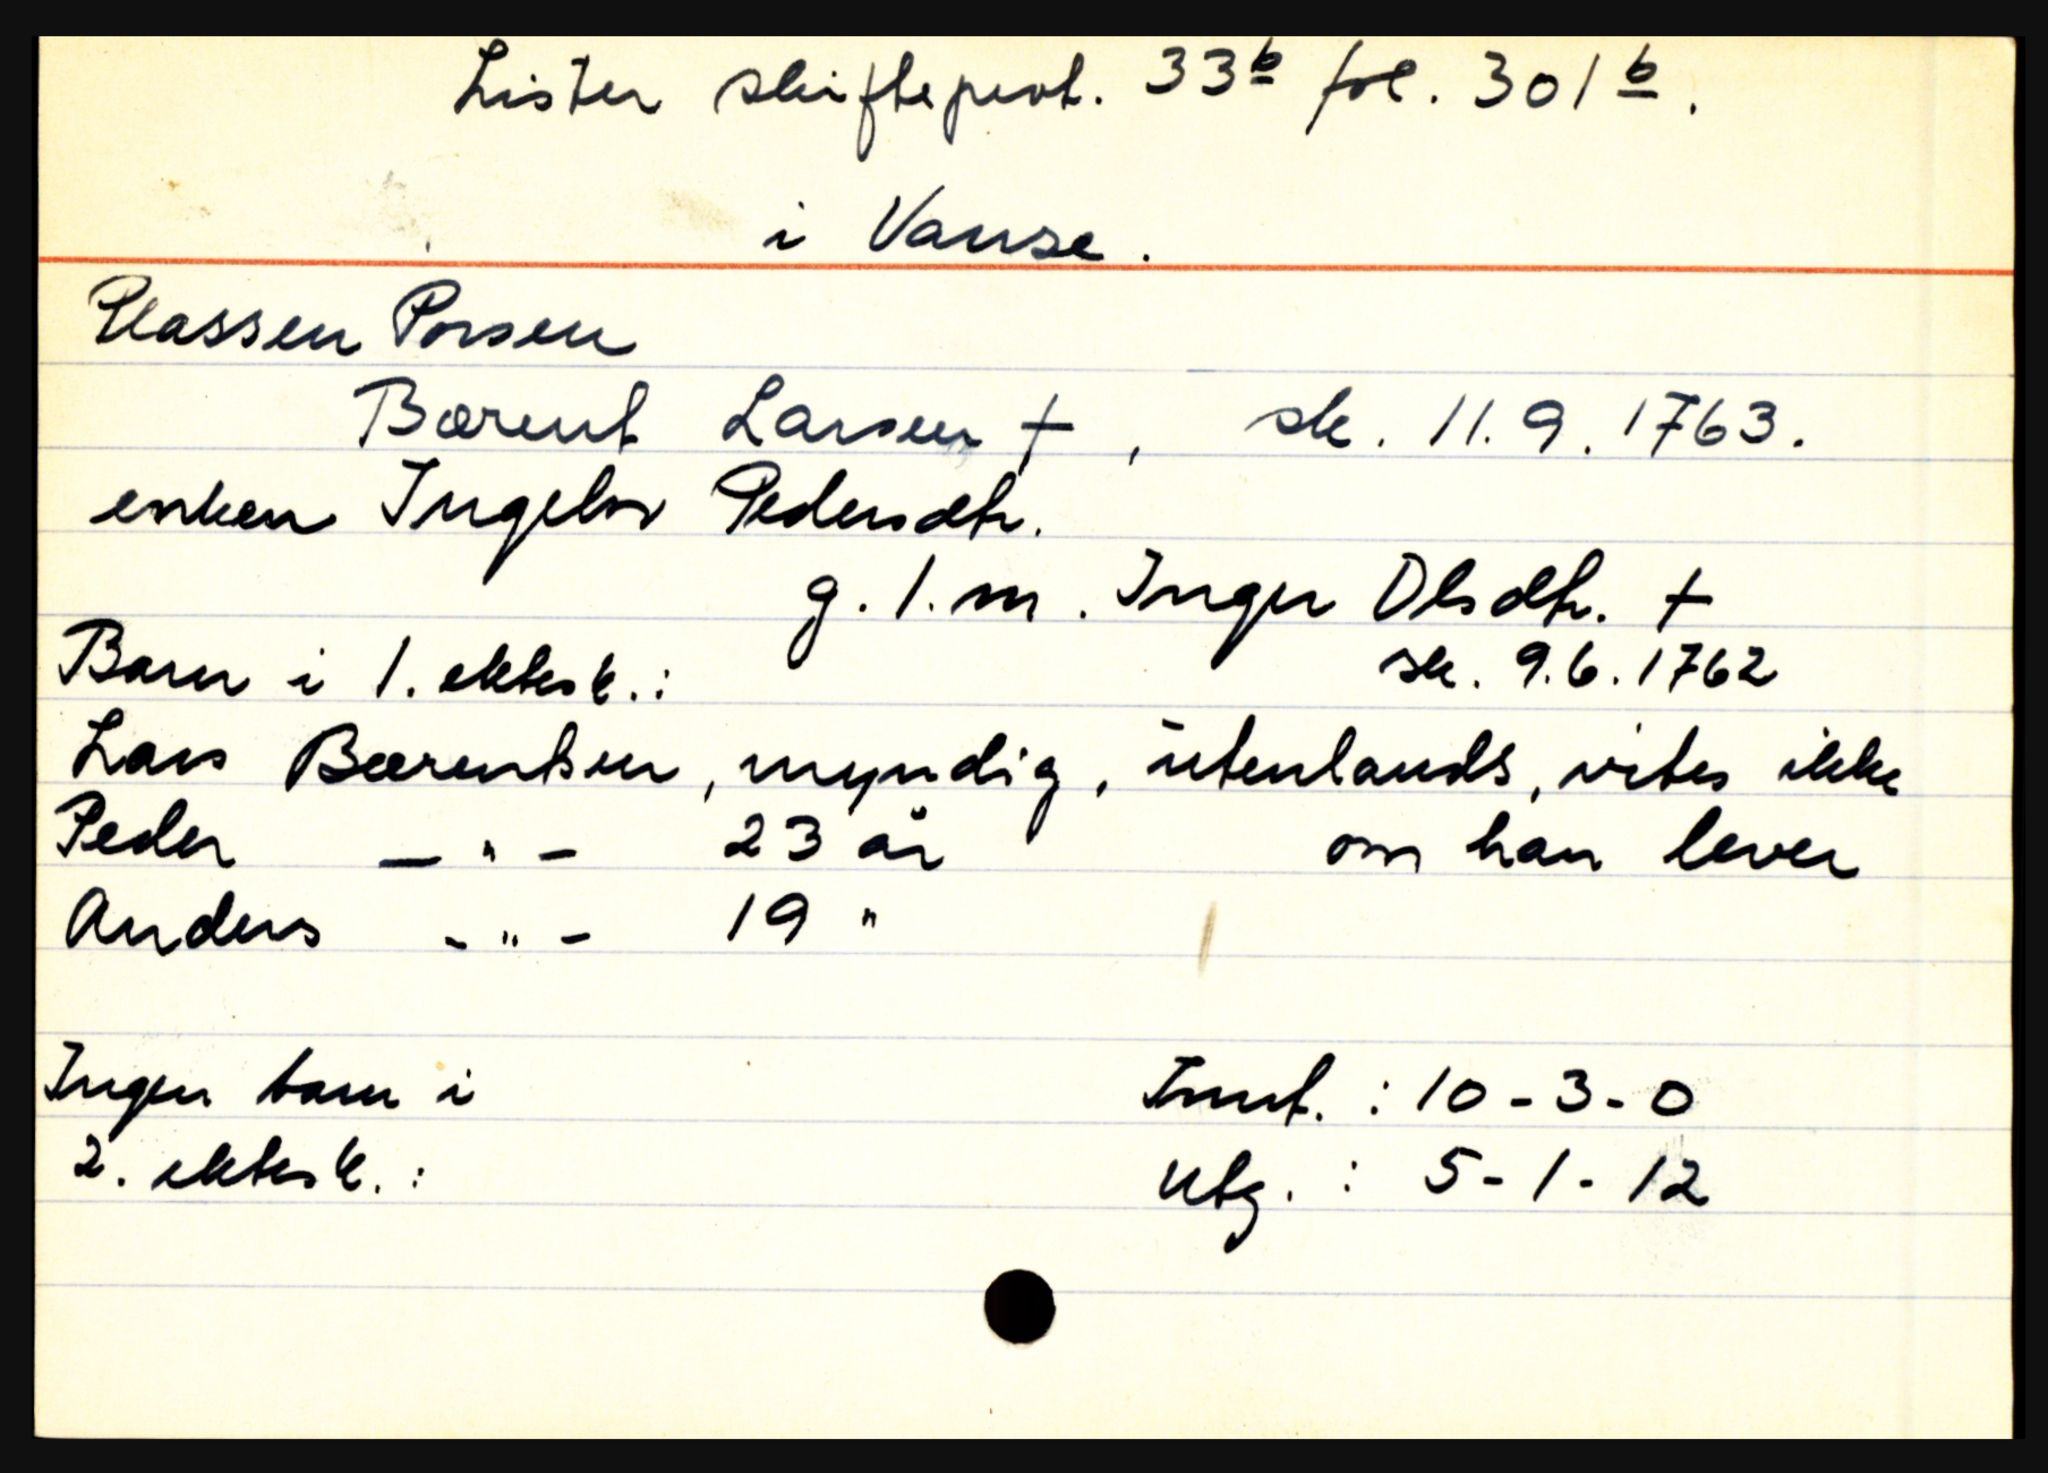 Lister skifteprot. 33b fol. 301b.
i Vanse.
Plassen Porsen
Bærent Larsen †, sk. 11.9.1763.
enken Ingebor Pedersdtr.
g. 1. m. Inger Olsdtr. †
sk. 9.6.1762
Barn i 1. ektesk.:
Lars Bærentsen, myndig, utenlands, vites ikke
Peder — " — 23 år om han lever
Anders - " - 19 "
Ingen barn i
2. ektesk.:
Innt. : 10 - 3 - 0
Utg. : 5 - 1 - 12